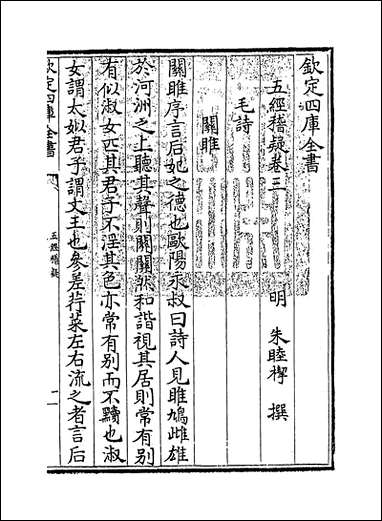 欽定四庫全書
五經稽疑卷三
明 朱睦㮮 撰
毛詩
關雎
關雎序言后妃之德也歐陽永叔曰詩人見雎鳩雌雄
於河洲之上聽其聲則關關然和諧視其居則常有別
有似淑女匹其君子不淫其色亦常有别而不黷也淑
女謂太姒君子謂文王也參差荇菜左右流之者言后
欽定四庫全書
五經稽疑
一